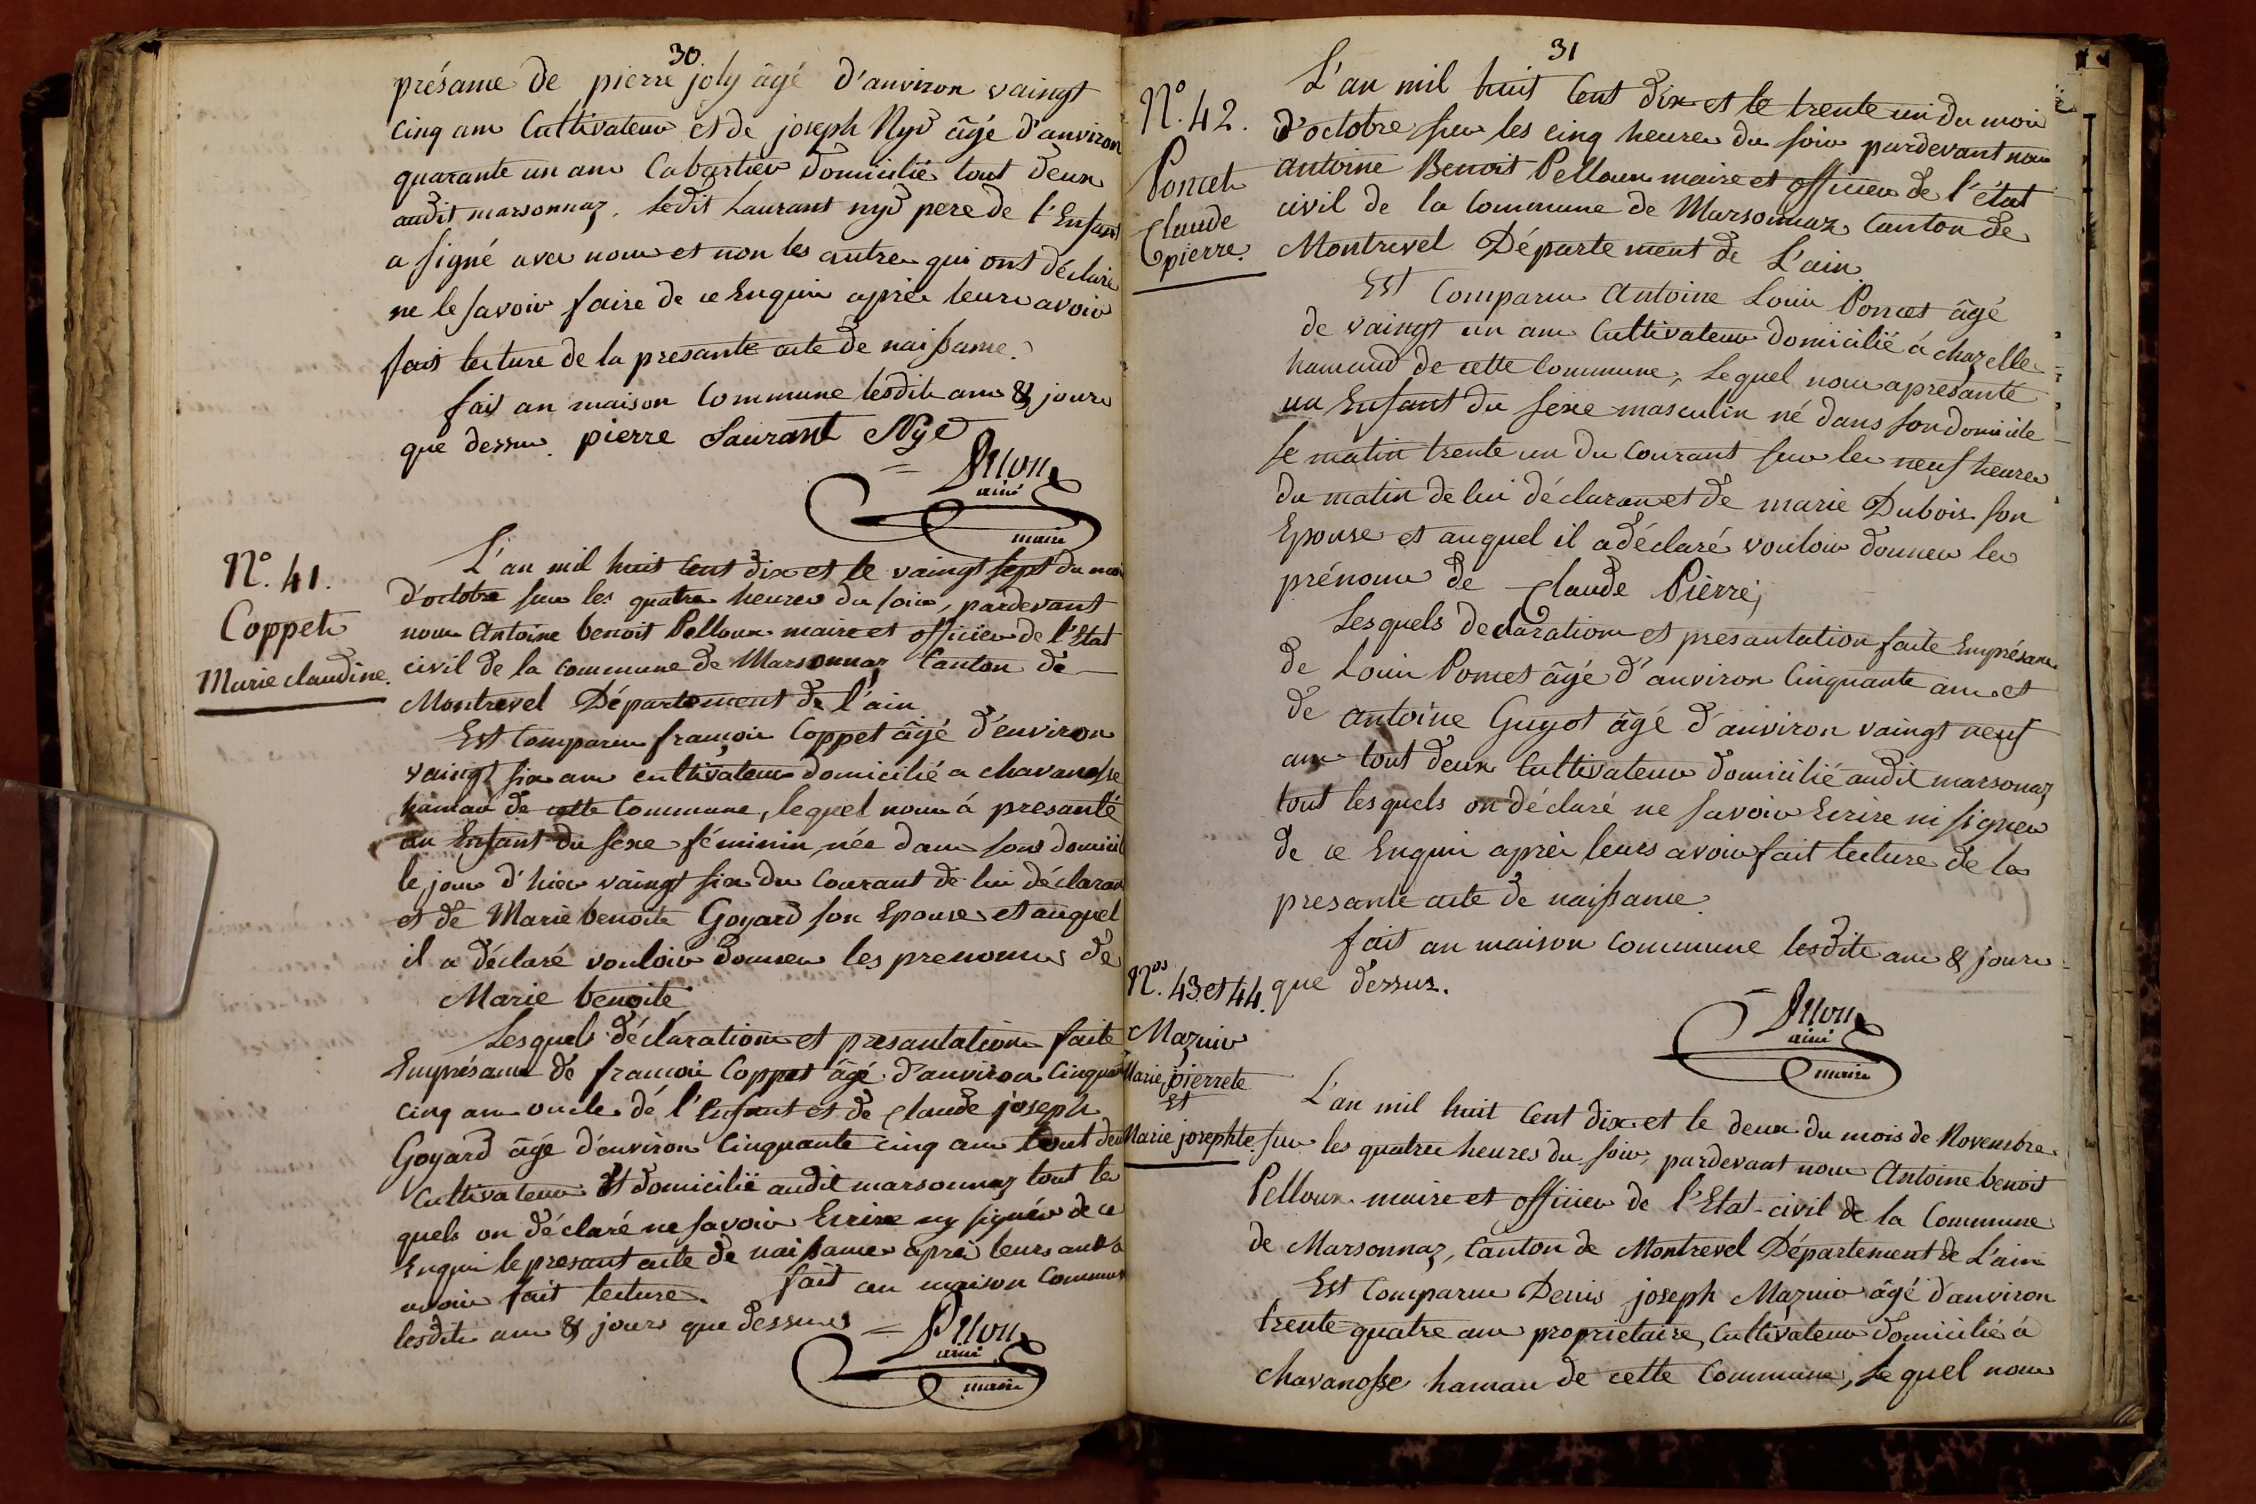 30.
présame de pierre joly âgé d'anviron vaingt
cinq ans Cultivateur et de joseph Nyd âgé d'anviron
quarante un ans Cabartier domicilié tout deux
audit marsonnaz. Ledit Laurant nyd pere de l'Enfant
a signé avec nous et non les autres qui ont déclaré
ne le savoir faire de ce Enquiu après leurs avoir
fait lecture de la presante acte de naissame.
fait an maison Commune lesdits ans & jours
que dessus. pierre Laurant Nyd
ainé
maire
N°. 41.
Coppet
Marie claudine.
L'an mil huit Cent dix et le vaingt sept du mois
d'octobre sur les quatre heures du soir, pardevant
nous Antoine benoit Pelloux maire et officier de l'Etat
civil de la Commune de Marsonnaz Canton de
Montrevel Département de l'ain
Est Comparu françois Coppet âgé d'environ
vaingt six ans cultivateur domicilié a chavanosse
hamau de cette Commune, lequel nous á presanté
un Enfant du sexe féminin née dans sont domicil
le jour d'hier vaingt six du Courant de lui déclarant
et de Marie benoite Goyard son Epouse et auquel
il a déclaré vouloir donner les prenoms de
Marie benoite
Lesquels déclaration et presantation faite
Emprésame de francois Coppet âgé d'anviron Cinquante
cinq ans oncle dé l'Enfant et de Claude joseph
Goyard âgé d'anviron Cinquante cinq ans tout deux
Cultivateur et domicilié audit marsonnaz tout les
quels on déclaré ne savoir Ecrire ny signér de ce
Enquiu le presant acte de naissames après leurs
avoir fait lecture. fait an maison Commune
lesdits ans & jours que dessus
ainé
maire
31
N°. 42.
Poncet
Claude
pierre.
L'an mil huit Cent dix et le trente un du mois
d'octobre sur les cinq heures du soir pardevant nous
antoine Benoit Pelloux maire et officier de l'état
civil de la Commune de Marsonnaz Canton de
Montrevel Département de L'ain
Est Comparu Antoine Louis Poncet âgé
de vaingt un ans Cultivateur domicilié á chazelle
hamaud de cette Commune, Lequel nous apresanté
un Enfant du sexe masculin né dans son domicile
le matin trente un du Courant sur les neuf heures
du matin de lui déclarant et de marie Dubois son
Epouse et auquel il adéclaré vouloir donner les
prénoms de Claude Pierre,
Lesquels declaration et presantation faite Emprésame
de Louis Poncet âgé d'anviron Cinquante ans et
de antoine Guyot âgé d'anviron vaingt neuf
ans tout deux Cultivateur domicilié audit marsonaz
tout lesquels on déclaré ne savoir Ecrire ni signer
de ce Enquiu après leurs avoir fait lecture de la
presante acte de naissame.
fait an maison Commune lesdits ans & jours
que dessus.
ainé
maire
Nos. 43. et 44.
Mazuir
Marie pierrete
Et
Marie josephte.
L'an mil huit Cent dix et le deux du mois de Novembre
sur les quatre heures du soir, pardevant nous Antoine benoit
Pelloux maire et officier de l'Etat-civil de la Commune
de Marsonnaz, Canton de Montrevel Département de L'ain
Est Comparu Denis joseph Mazuir âgé d'anviron
trente quatre ans proprietaire, Cultivateur domicilié á
chavanosse hamau de cette Commune, Le quel nous